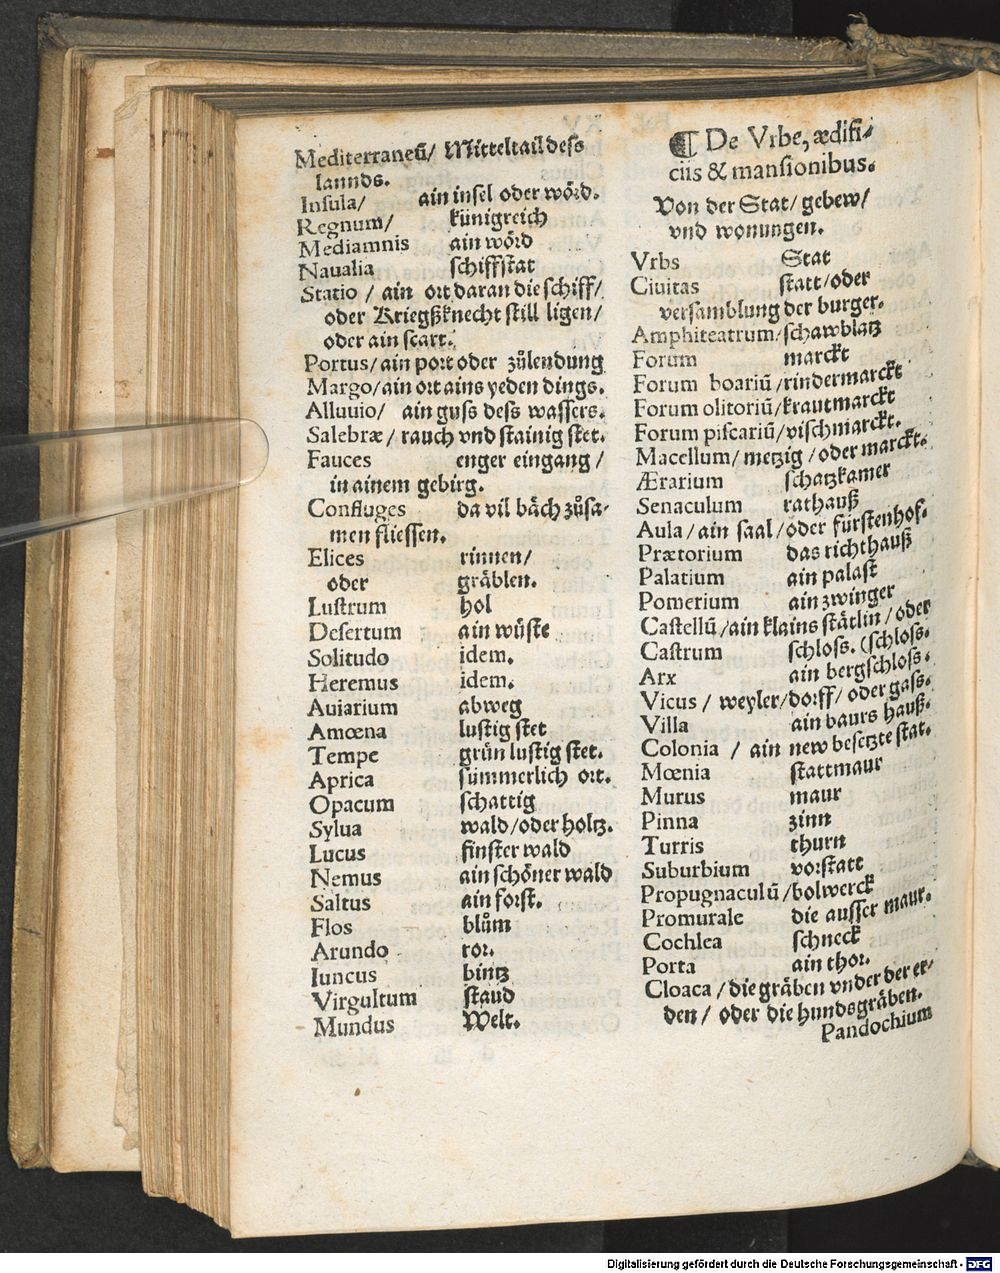 Mediterraneũ/ Mitteltail dess
lannds.
Insula/ ain insel oder wörd.
Regnum/ künigreich
Mediamnis ain wörd
Naualia schiffstat
Statio / ain ort daran die schiff/
oder Kriegßknecht still ligen/
oder ain scart.
Portus/ain port oder zůlendung
Margo/ain ort ains yeden dings.
Alluuio/ ain guss dess wassers.
Salebræ/ rauch vnd stainig stet.
Fauces enger eingang /
in ainem gebirg.
Confluges da vil bäch zůsa-
men fliessen.
Elices rinnen/
oder gräblen.
Lustrum hol
Desertum ain wüste
Solitudo idem.
Heremus idem.
Auiarium abweg
Amœna lustig stet
Tempe grün lustig stet.
Aprica summerlich ort.
Opacum schattig
Sylua wald/oder holtz.
Lucus finster wald
Nemus ain schöner wald
Saltus ain forst.
Flos blům
Arundo ror.
Iuncus bintz
Virgultum staud
Mundus Welt.
¶ De Vrbe, ædifi-
ciis & mansionibus.
Von der Stat/ gebew/
vnd wonungen.
Vrbs Stat
Ciuitas statt/oder
versamblung der burger.
Amphiteatrum/schawblatz
Forum marckt
Forum boariũ/rindermarckt
Forum olitoriũ/krautmarckt
Forum piscariũ/vischmarckt.
Macellum/ metzig /oder marckt.
Ærarium schatzkamer
Senaculum rathauß
Aula/ain saal/oder fürstenhof.
Prætorium das richthauß
Palatium ain palast
Pomerium ain zwinger
Castellũ/ain klains stätlin/oder
Castrum schloss. (schloss.
Arx ain bergschloss.
Vicus / weyler/dorff/ oder gass.
Villa ain baurs hauß.
Colonia / ain new besetzte stat.
Mœnia stattmaur
Murus maur
Pinna zinn
Turris thurn
Suburbium vorstatt
Propugnaculũ/bolwerck
Promurale die ausser maur.
Cochlea schneck
Porta ain thor.
Cloaca/die gräben vnder der er-
den/ oder die hundsgräben.
Pandochium
Digitalisierung gefördert durch die Deutsche Forschungsgemeinschaft - DFG